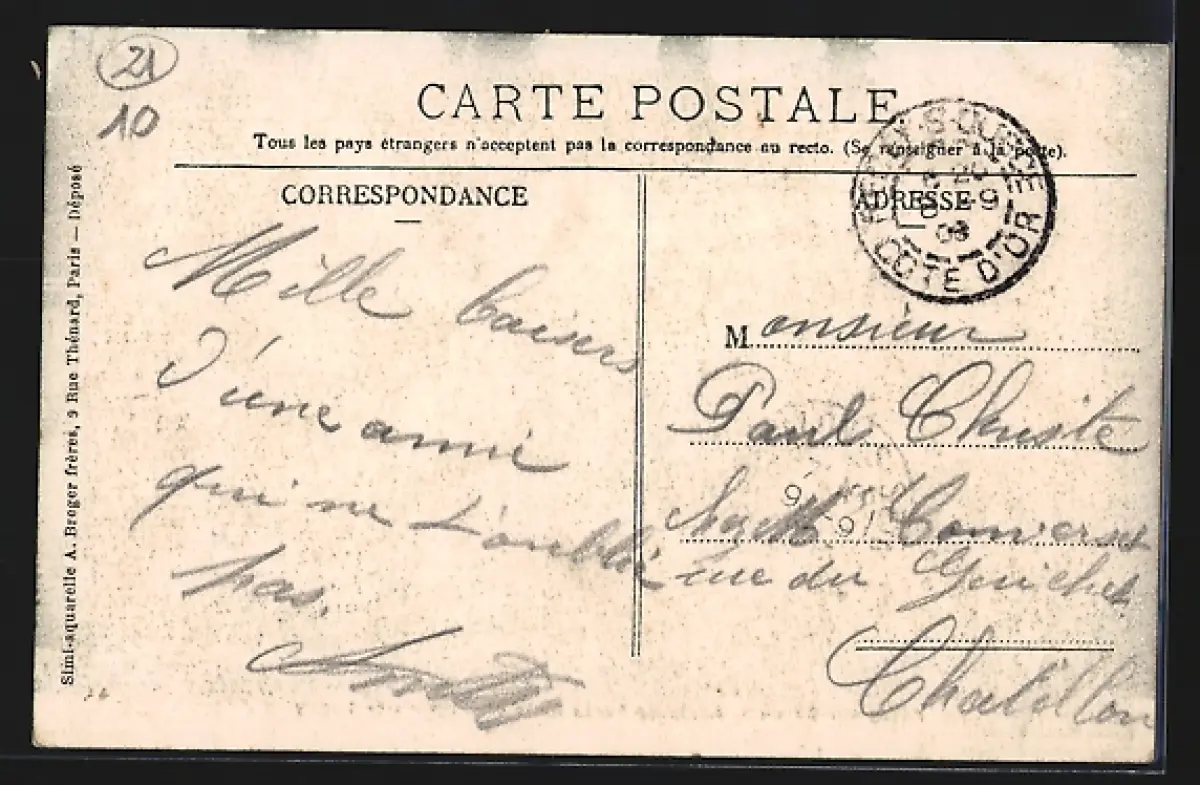 21
10
CARTE POSTALE
Tous les pays étrangers n'acceptent pas la correspondance au recto. (Se renseigner à la poste).
CORRESPONDANCE
ADRESSE
COTE D'OR
Mille baisers
d'une amie
qui ne t'oublie
pas.
Monsieur
Paul Christe
rue du Guichet
Chatillon
Simi-aquarelle A. Breger frères, 9 Rue Thénard, Paris — Déposé